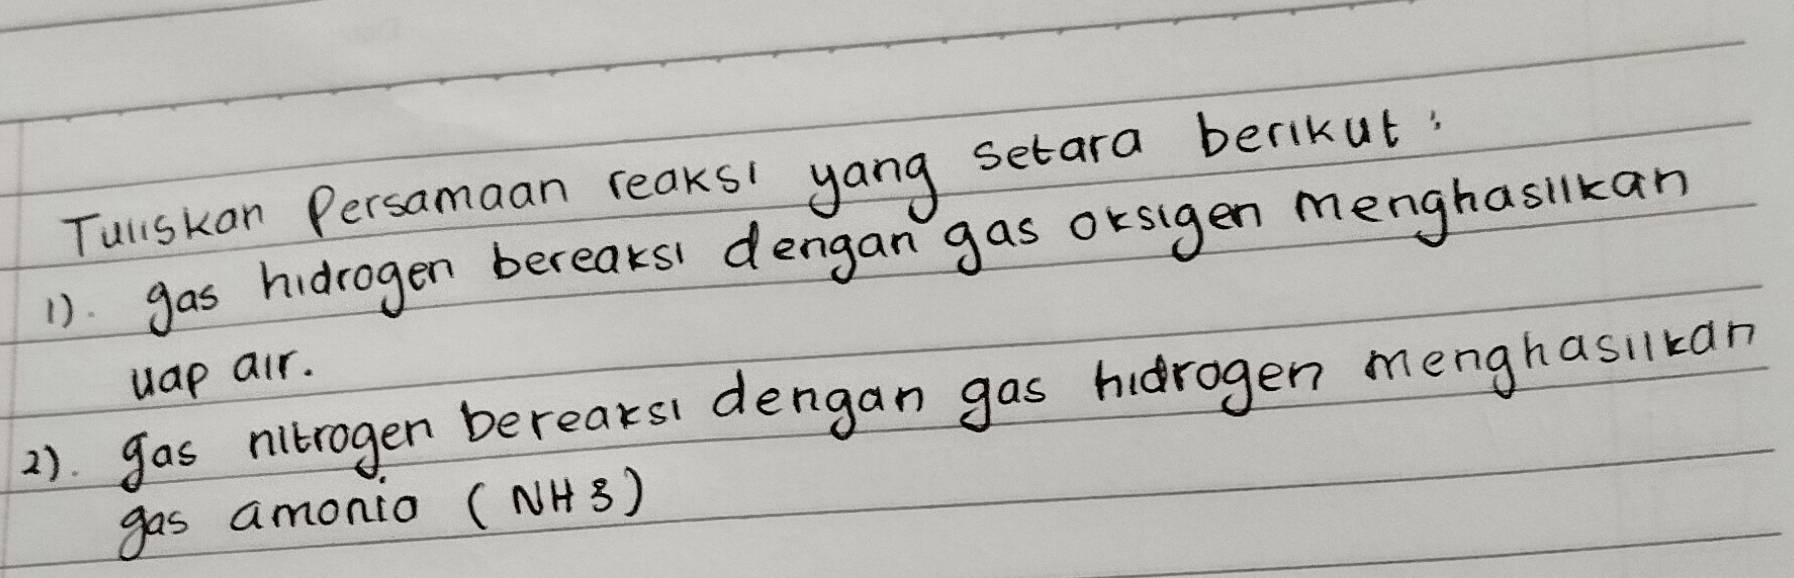 Tuliskan Persamaan reaksi yang setara berikut :
1). gas hidrogen bereaksi dengan gas oksigen menghasilkan
uap air.
2). gas nitrogen bereaksi dengan gas hidrogen menghasilkan
gas amonia (NH3)